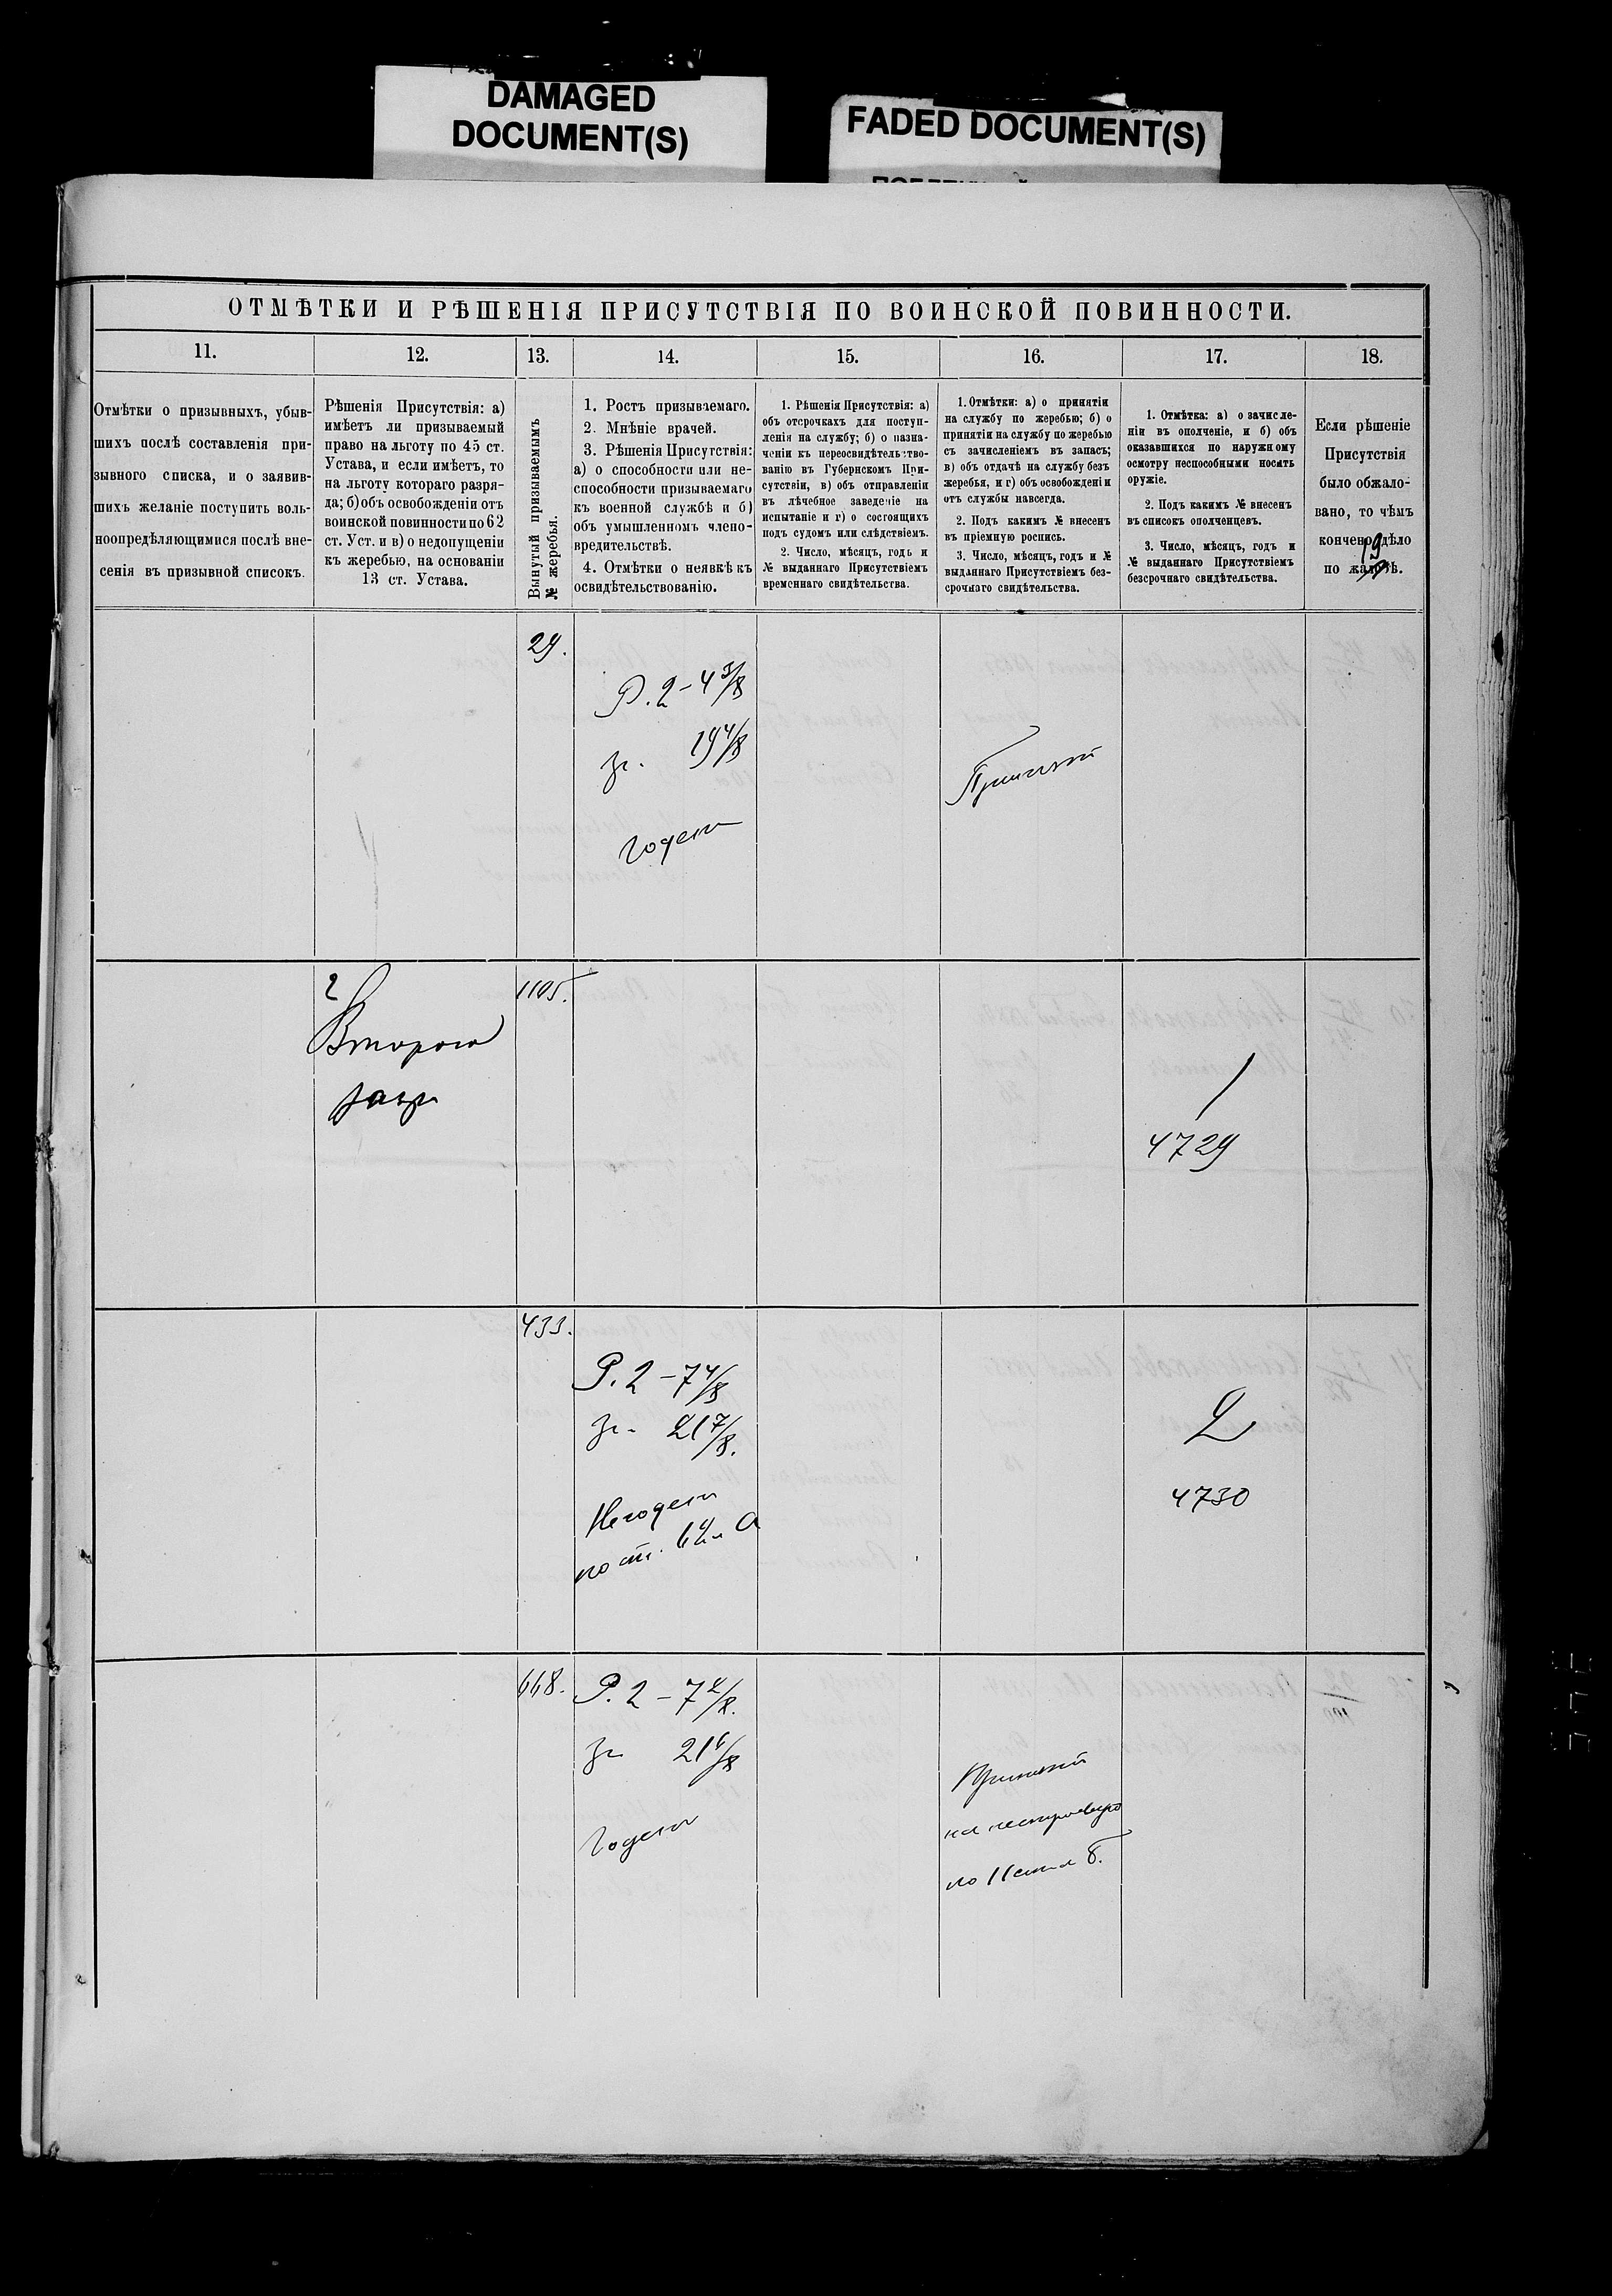 DAMAGED
DOCUMENT(S)
FADED DOCUMENT(S)
ОТМѢТКИ И РѢШЕНІЯ ПРИСУТСТВІЯ ПО ВОИНСКОЙ ПОВИННОСТИ.
11.
12.
13.
14.
15.
16.
17.
18.
Отмѣтки о призывныхъ, убыв-
шихъ послѣ составленія при-
зывного списка, и о заявив-
шихъ желаніе поступить воль-
ноопредѣляющимися послѣ вне-
сенія въ призывной списокъ.
Рѣшенія Присутствія: а)
имѣетъ ли призываемый
право на льготу по 45 ст.
Устава, и если имѣетъ, то
на льготу котораго разря-
да; б) объ освобожденіи отъ
воинской повинности по 62
ст. Уст. и в) о недопущеніи
къ жеребью, на основаніи
13 ст. Устава.
Вынутый призываемымъ
№ жеребья.
1. Ростъ призываемаго.
2. Мнѣніе врачей.
3. Рѣшенія Присутствія:
а) о способности или не-
способности призываемаго
къ военной службѣ и б)
объ умышленномъ члено-
вредительствѣ.
4. Отмѣтки о неявкѣ къ
освидѣтельствованію.
1. Рѣшенія Присутствія: а)
объ отсрочкахъ для поступ-
ленія на службу; б) о назна-
ченіи къ переосвидѣтельство-
ванію въ Губернскомъ При-
сутствіи, в) объ отправленіи
въ лѣчебное заведеніе на
испытаніе и г) о состоящихъ
подъ судомъ или слѣдствіемъ.
2. Число, мѣсяцъ, годъ и
№ выданнаго Присутствіемъ
временнаго свидѣтельства.
1. Отмѣтки: а) о принятіи
на службу по жеребью; б) о
принятіи на службу по жеребью
съ зачисленіемъ въ запасъ;
в) объ отдачѣ на службу безъ
жеребья, и г) объ освобожденіи
отъ службы навсегда.
2. Подъ какимъ № внесенъ
въ пріемную роспись.
3. Число, мѣсяцъ, годъ и №
выданнаго Присутствіемъ без-
срочнаго свидѣтельства.
1. Отмѣтка: а) о зачисле-
ніи въ ополченіе, и б) объ
оказавшихся по наружному
осмотру неспособными носить
оружіе.
2. Подъ какимъ № внесенъ
въ списокъ ополченцевъ.
3. Число, мѣсяцъ, годъ и
№ выданнаго Присутствіемъ
безсрочнаго свидѣтельства.
Если рѣшеніе
Присутствія
было обжало-
вано, то чѣмъ
кончено дѣло
по жалобѣ.
29.
Р. 2 – 4 3/8
Зг. 19 4/8
Годенъ
Принятъ
2
Второго
разр
1105.
1
4729
433.
Р. 2 – 7 4/8
Зг. 21 7/8.
Негоденъ
по ст. 62 л А
2
4730
668.
Р. 2 – 7 2/8.
Зг 21 6/8
Годенъ
Принятъ
по 11 ст л Б.